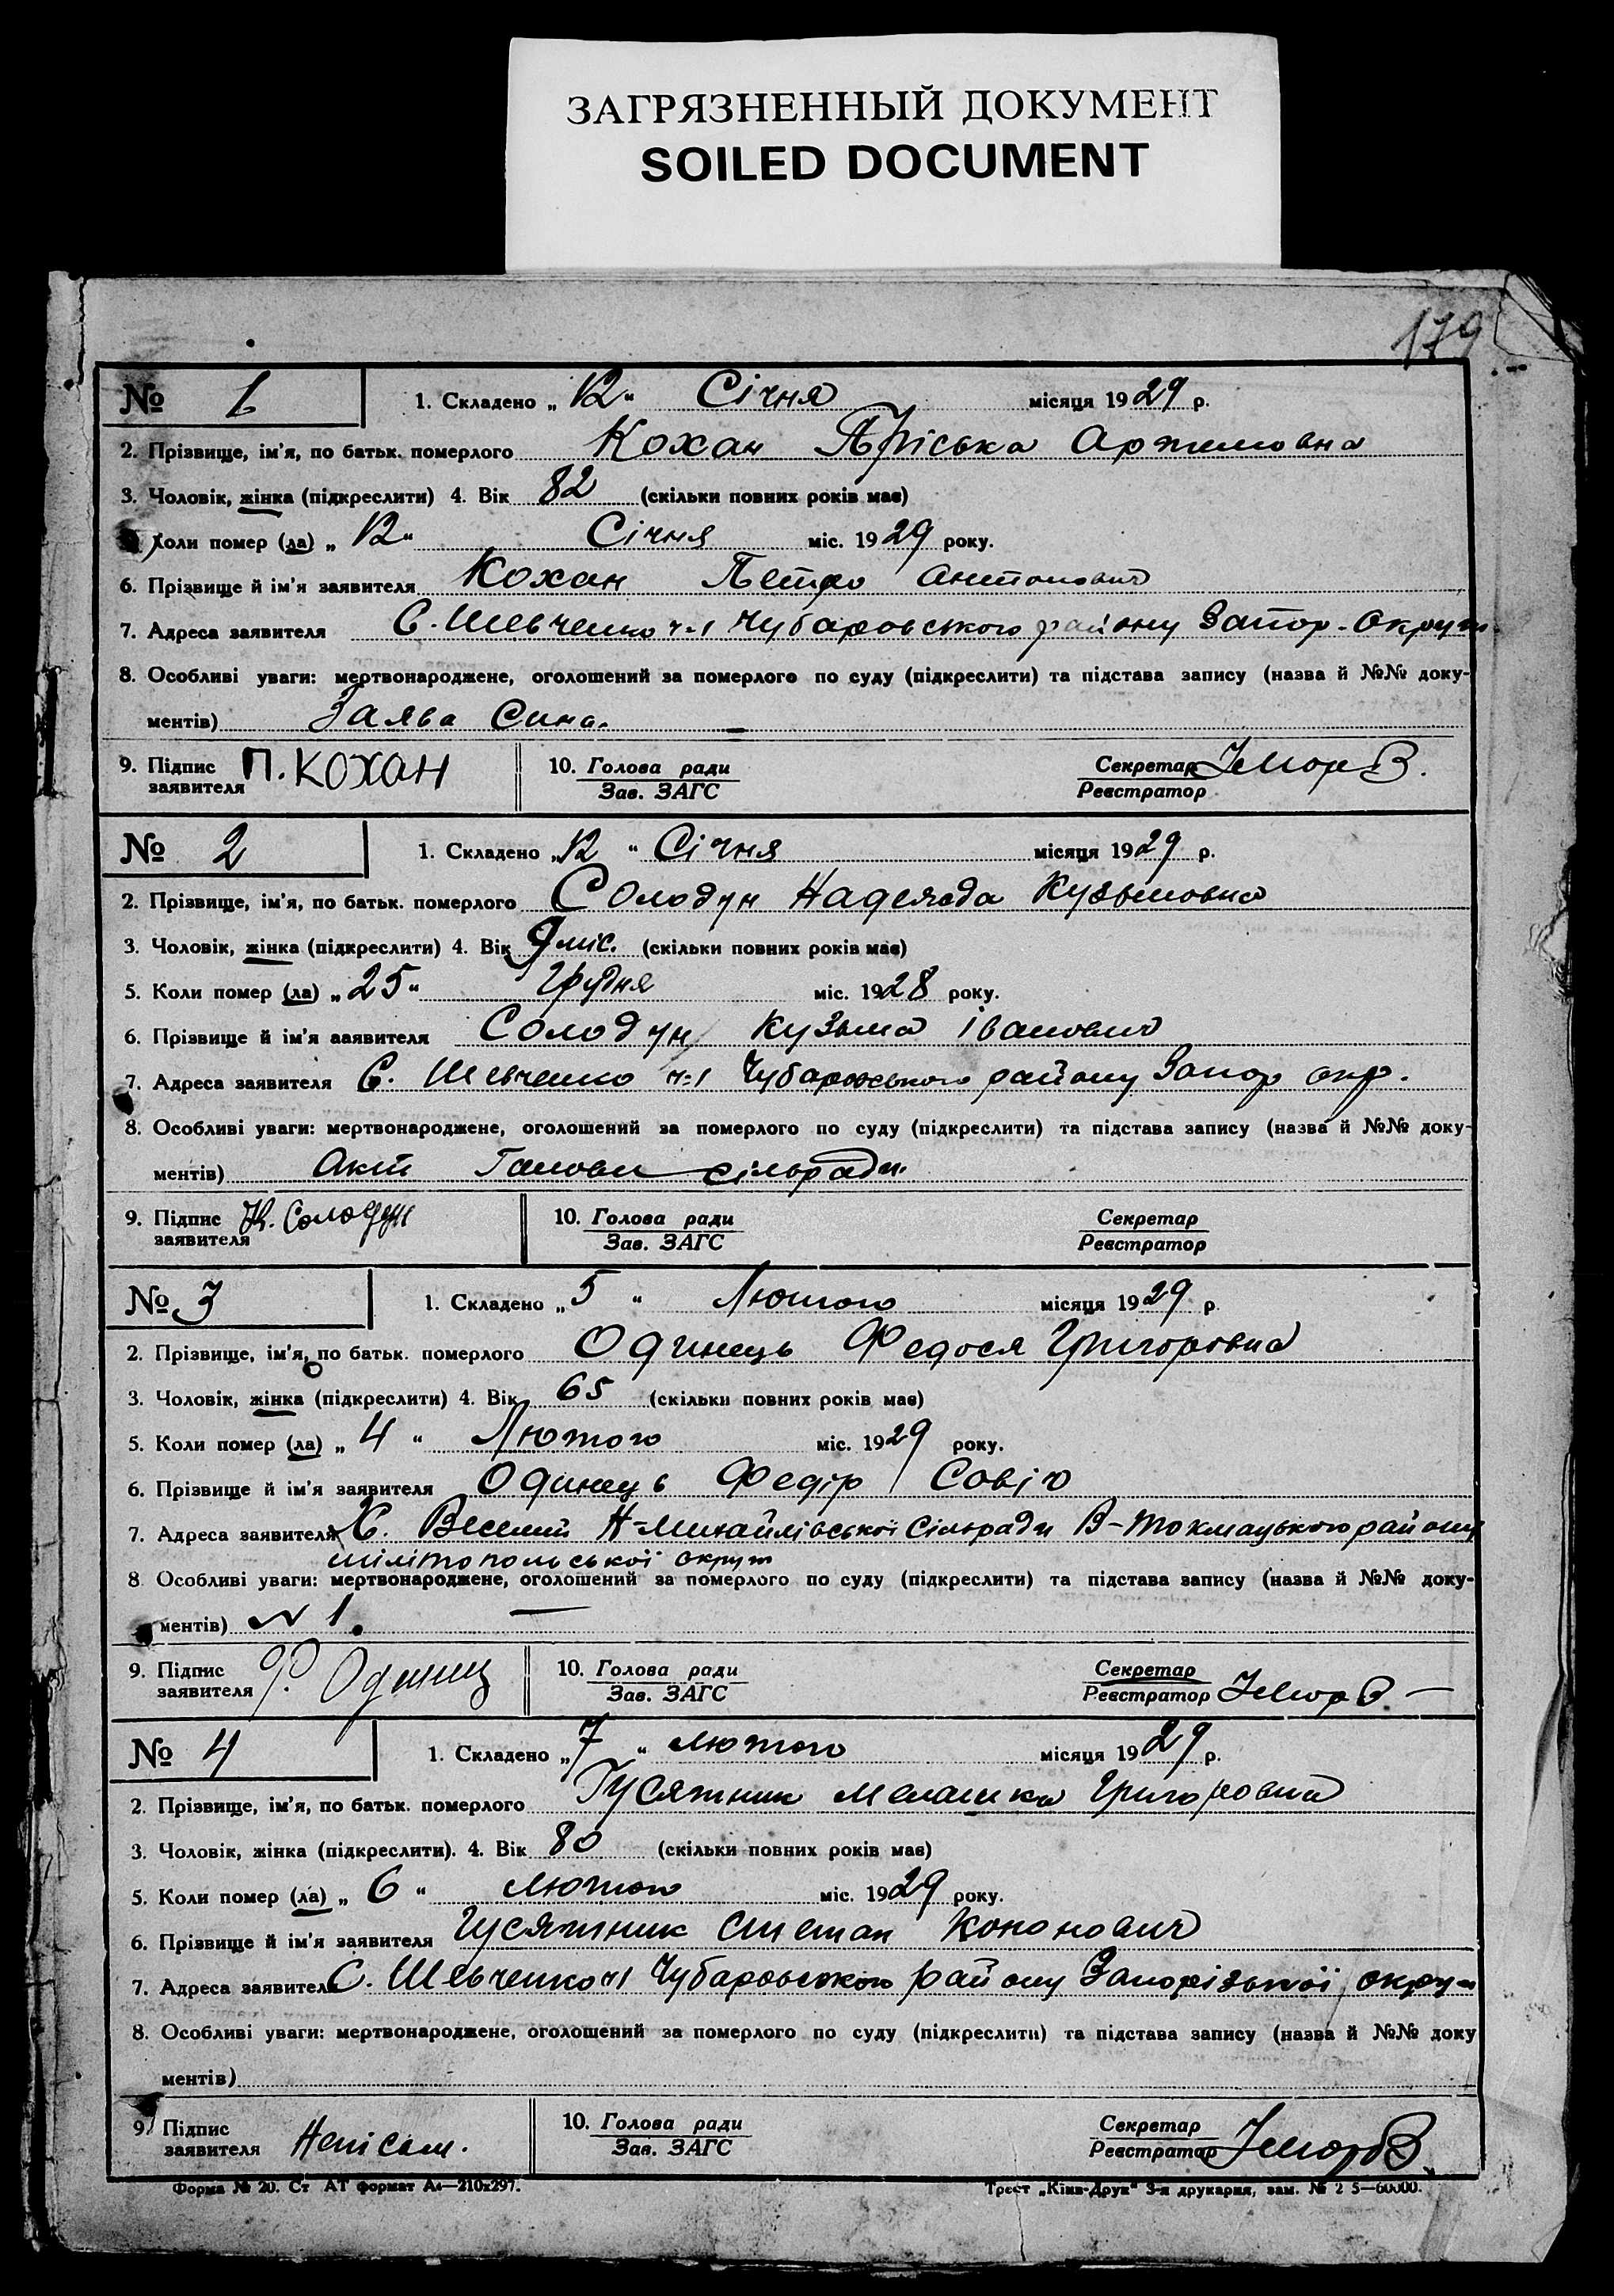 ЗАГРЯЗНЕННЫЙ ДОКУМЕНТ
SOILED DOCUMENT
179
№ 1
1. Складено „12“ Січня місяця 1929 р.
2. Прізвище, ім'я, по батьк. померлого Кохан Пріська Артемовна
3. Чоловік, жінка (підкреслити) 4. Вік 82 (скільки повних років має)
Коли помер (ла) „12“ Січня міс. 1929 року.
6. Прізвище й ім'я заявителя Кохан Петро Антонович
7. Адреса заявителя С. Шевченко ч-1 Чубаровського району Запор. Округи
8. Особливі уваги: мертвонароджене, оголошений за померлого по суду (підкреслити) та підстава запису (назва й №№ доку-
ментів) Заява Сина.
9. Підпис заявителя П. КОХАН
10. Голова ради
Зав. ЗАГС
Секретар
Реєстратор
№ 2
1. Складено „12“ Січня місяця 1929 р.
2. Прізвище, ім'я, по батьк. померлого Солодун Надежда Кузьмовна
3. Чоловік, жінка (підкреслити) 4. Вік 9 міс. (скільки повних років має)
5. Коли помер (ла) „25“ Грудня міс. 1928 року.
6. Прізвище й ім'я заявителя Солодун Кузьма Іванович
7. Адреса заявителя С. Шевченко ч-1 Чубаровського району Запор окр.
8. Особливі уваги: мертвонароджене, оголошений за померлого по суду (підкреслити) та підстава запису (назва й №№ доку-
ментів) Акт Голови сільради.
9. Підпис заявителя К. Солодун
10. Голова ради
Зав. ЗАГС
Секретар
Реєстратор
№ 3
1. Складено „5“ Лютого місяця 1929 р.
2. Прізвище, ім'я, по батьк. померлого Одинець Федося Григоровна
3. Чоловік, жінка (підкреслити) 4. Вік 65 (скільки повних років має)
5. Коли помер (ла) „4“ Лютого міс. 1929 року.
6. Прізвище й ім'я заявителя Одинець Федір
7. Адреса заявителя Х. Веселий Н-Михайлівської Сільради В-Токмацького району
мілітопольської округи
8. Особливі уваги: мертвонароджене, оголошений за померлого по суду (підкреслити) та підстава запису (назва й №№ доку-
ментів) N 1.
9. Підпис заявителя Ф. Одинец
10. Голова ради
Зав. ЗАГС
Секретар
Реєстратор
№ 4
1. Складено „7“ лютого місяця 1929 р.
2. Прізвище, ім'я, по батьк. померлого Гусятник Мелашка Григоровна
3. Чоловік, жінка (підкреслити). 4. Вік 80 (скільки повних років має)
5. Коли помер (ла) „6“ лютого міс. 1929 року.
6. Прізвище й ім'я заявителя Гусятник Степан Кононович
7. Адреса заявителя С. Шевченко ч1 Чубаровського району Запорізької округи
8. Особливі уваги: мертвонароджене, оголошений за померлого по суду (підкреслити) та підстава запису (назва й №№ доку
ментів)
9. Підпис заявителя Неписм.
10. Голова ради
Зав. ЗАГС
Секретар
Реєстратор
Форма № 20. Ст АТ формат А4—210х297.
Трест „Київ-Друк“ 3-я друкарня, зам. № 2 5—60000.